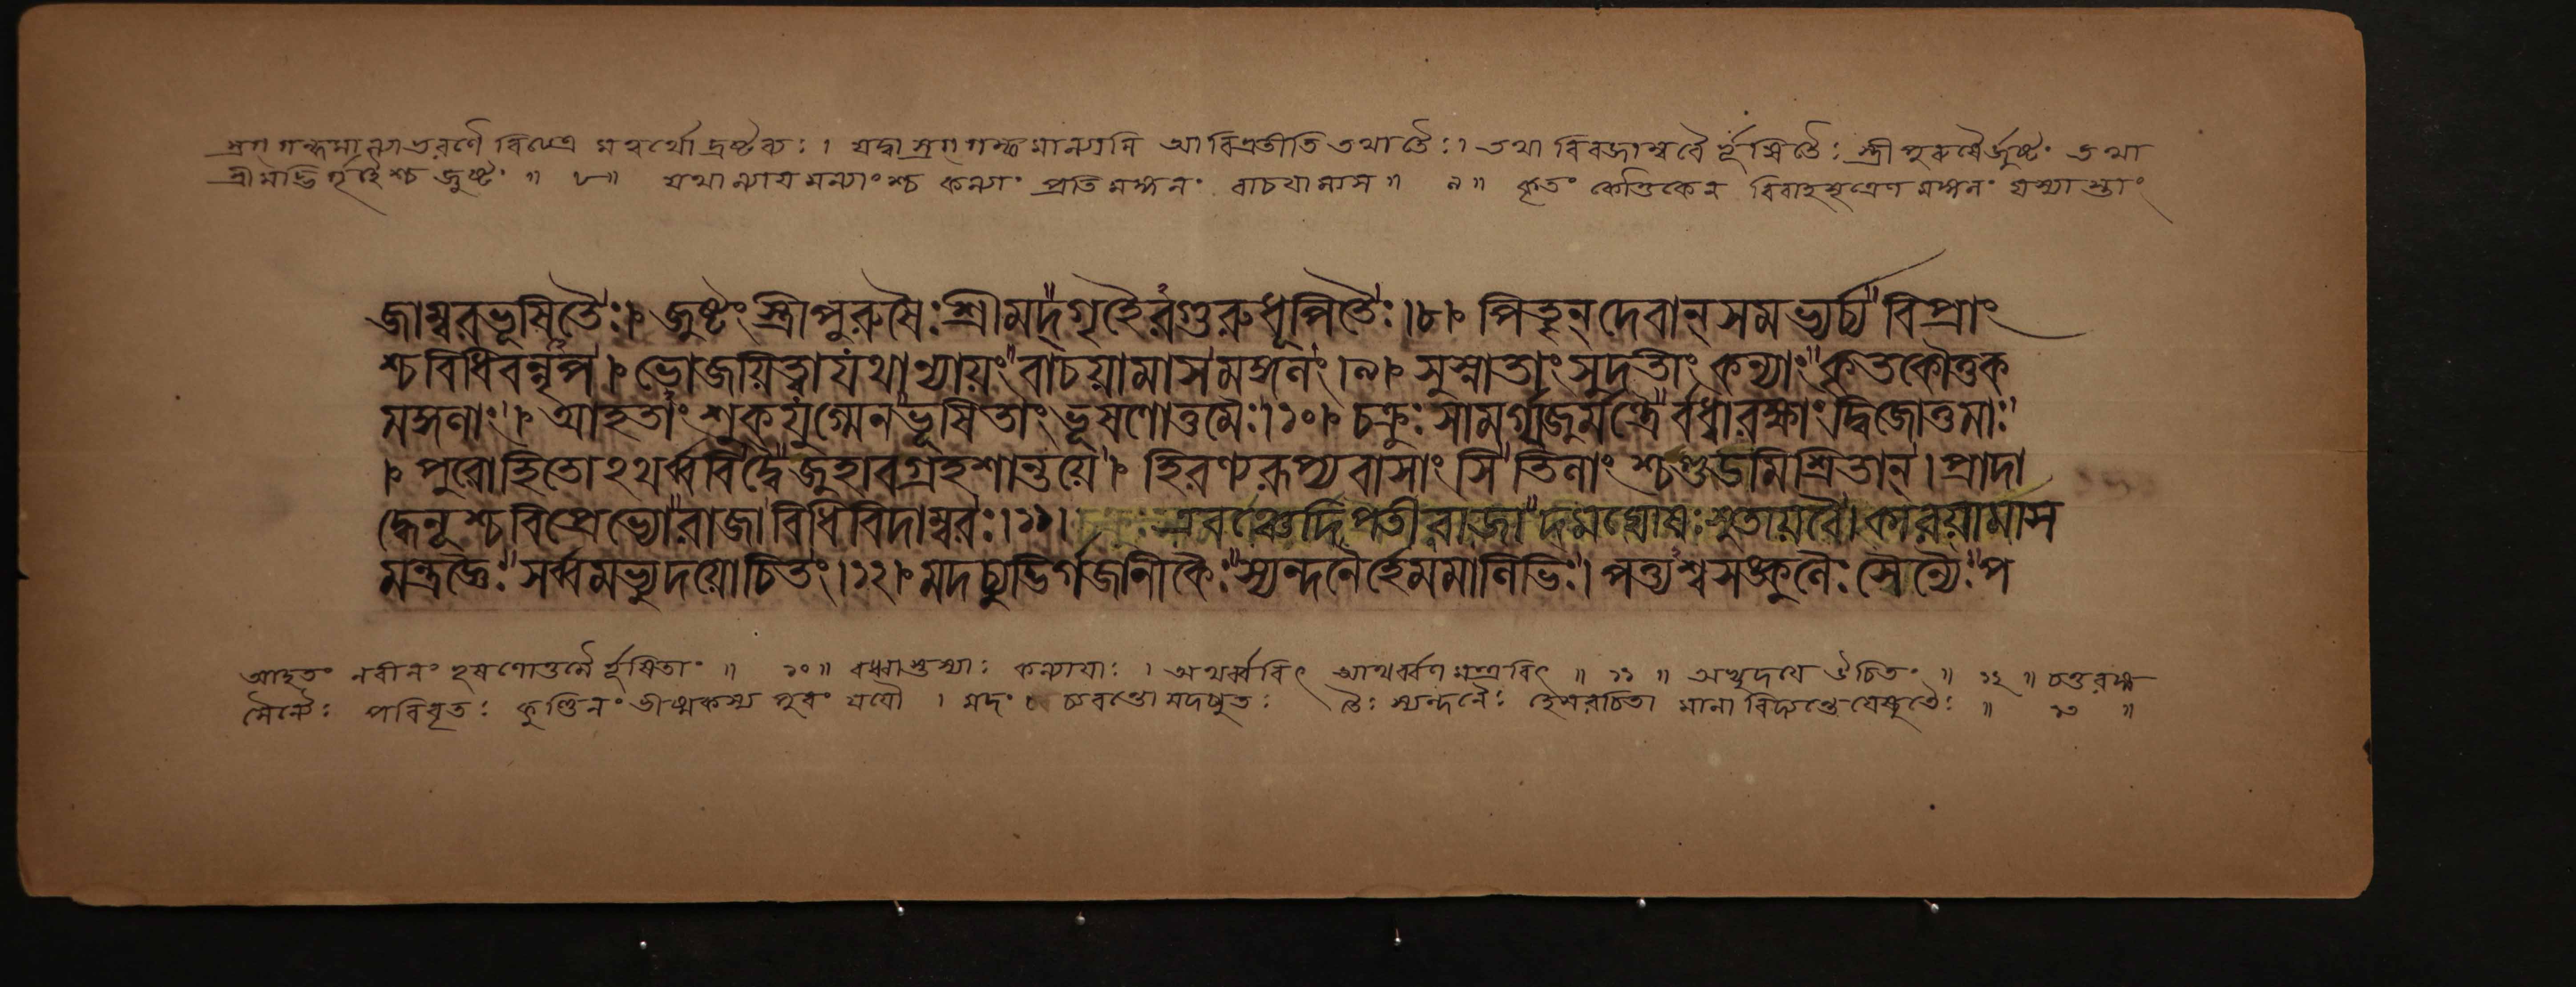 স্রগ্গন্ধমাল্যাভরণৈ বিত্যত্র মত্বর্থো দ্রষ্টব্যঃ । যদ্বা স্রগ্গন্ধমাল্যানি আবিভ্রতীতি তথা তৈঃ । তথা বিরজাম্বরৈ র্ভূষিতৈঃ স্ত্রীপুরুষৈর্জুষ্টং তথা
শ্রীমদ্ভি র্গৃহৈশ্চ জুষ্টং ॥ ৮॥ যথান্যায মন্যাংশ্চ কন্যাং প্রতি মঙ্গলং বাচযামাস ॥ ৯॥ কৃতং কৌতুকেন বিবাহসূত্রেণ মঙ্গলং যস্যাস্তাং
জাম্বরভূষিতৈঃ। জুষ্টং স্ত্রীপুরুষৈঃ শ্রীমদ্গৃহৈরগুরুধূপিতৈঃ।৮। পিতৄন্ দেবান্ সমভ্যর্চ্য বিপ্রাং
শ্চ বিধিবন্নৃপ। ভোজয়িত্বা যথান্যায়ং বাচয়ামাস মঙ্গলং।৯। সুস্নাতাং সুদতীং কন্যাং কৃতকৌতুক
মঙ্গলাং। আহতাংশুকযুগ্মেন ভূষিতাং ভূষণোত্তমৈঃ।১০। চক্রুঃ সামর্গ্যজুর্মন্ত্রৈ র্বধ্বা রক্ষাং দ্বিজোত্তমাঃ
। পুরোহিতোঽথর্ব্ববিদ্বৈ জুহাব গ্রহশান্তয়ে। হিরণ্যরূপ্যবাসাংসি তিলাংশ্চ গুডমিশ্রিতান্। প্রাদা
দ্ধেনূশ্চ বিপ্রেভ্যো রাজা বিধিবিদাম্বরঃ।১১। এবঞ্চেদিপতী রাজা দমঘোষঃ সুতায় বৈ। কারয়ামাস
মন্ত্রজ্ঞৈঃ সর্ব্বমভ্যুদয়োচিতং।১২। মদচ্যুদ্ভির্গজানীকৈঃ স্যন্দনৈর্হেমমালিভিঃ। পত্ত্যশ্বসঙ্কুলৈঃ সৈন্যৈঃ প
আহতং নবীনং ভূষণোত্তমৈ র্ভূষিতাং ॥ ১০॥ বধ্বাস্তস্যাঃ কন্যাযাঃ । অথর্ব্ববিৎ আথর্ব্বণ মন্ত্রবিৎ ॥ ১১ ॥ অভ্যুদযে উচিতং ॥ ১২ ॥ চতুরঙ্গ
সৈন্যৈঃ পরিবৃতঃ কুণ্ডিনং ভীষ্মকস্য পুরং যযৌ । মদং চ্যবন্তো মদচ্যুতঃ তৈঃ স্যন্দনৈঃ হেমরচিতা মালা বিদ্যন্তে যেষু তৈঃ ॥ ১৩ ॥